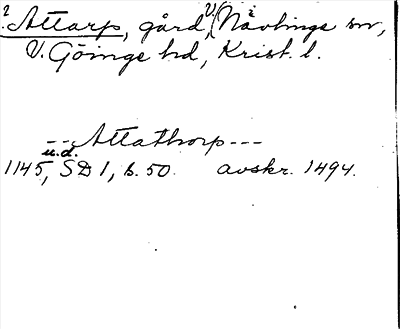 ? Attarp, gård, V. (Nävlinge sn,
V. Göinge hd, Krist. l.
--- Attathorp ---
u.d.
1145, SD 1, s. 50. avskr. 1494.